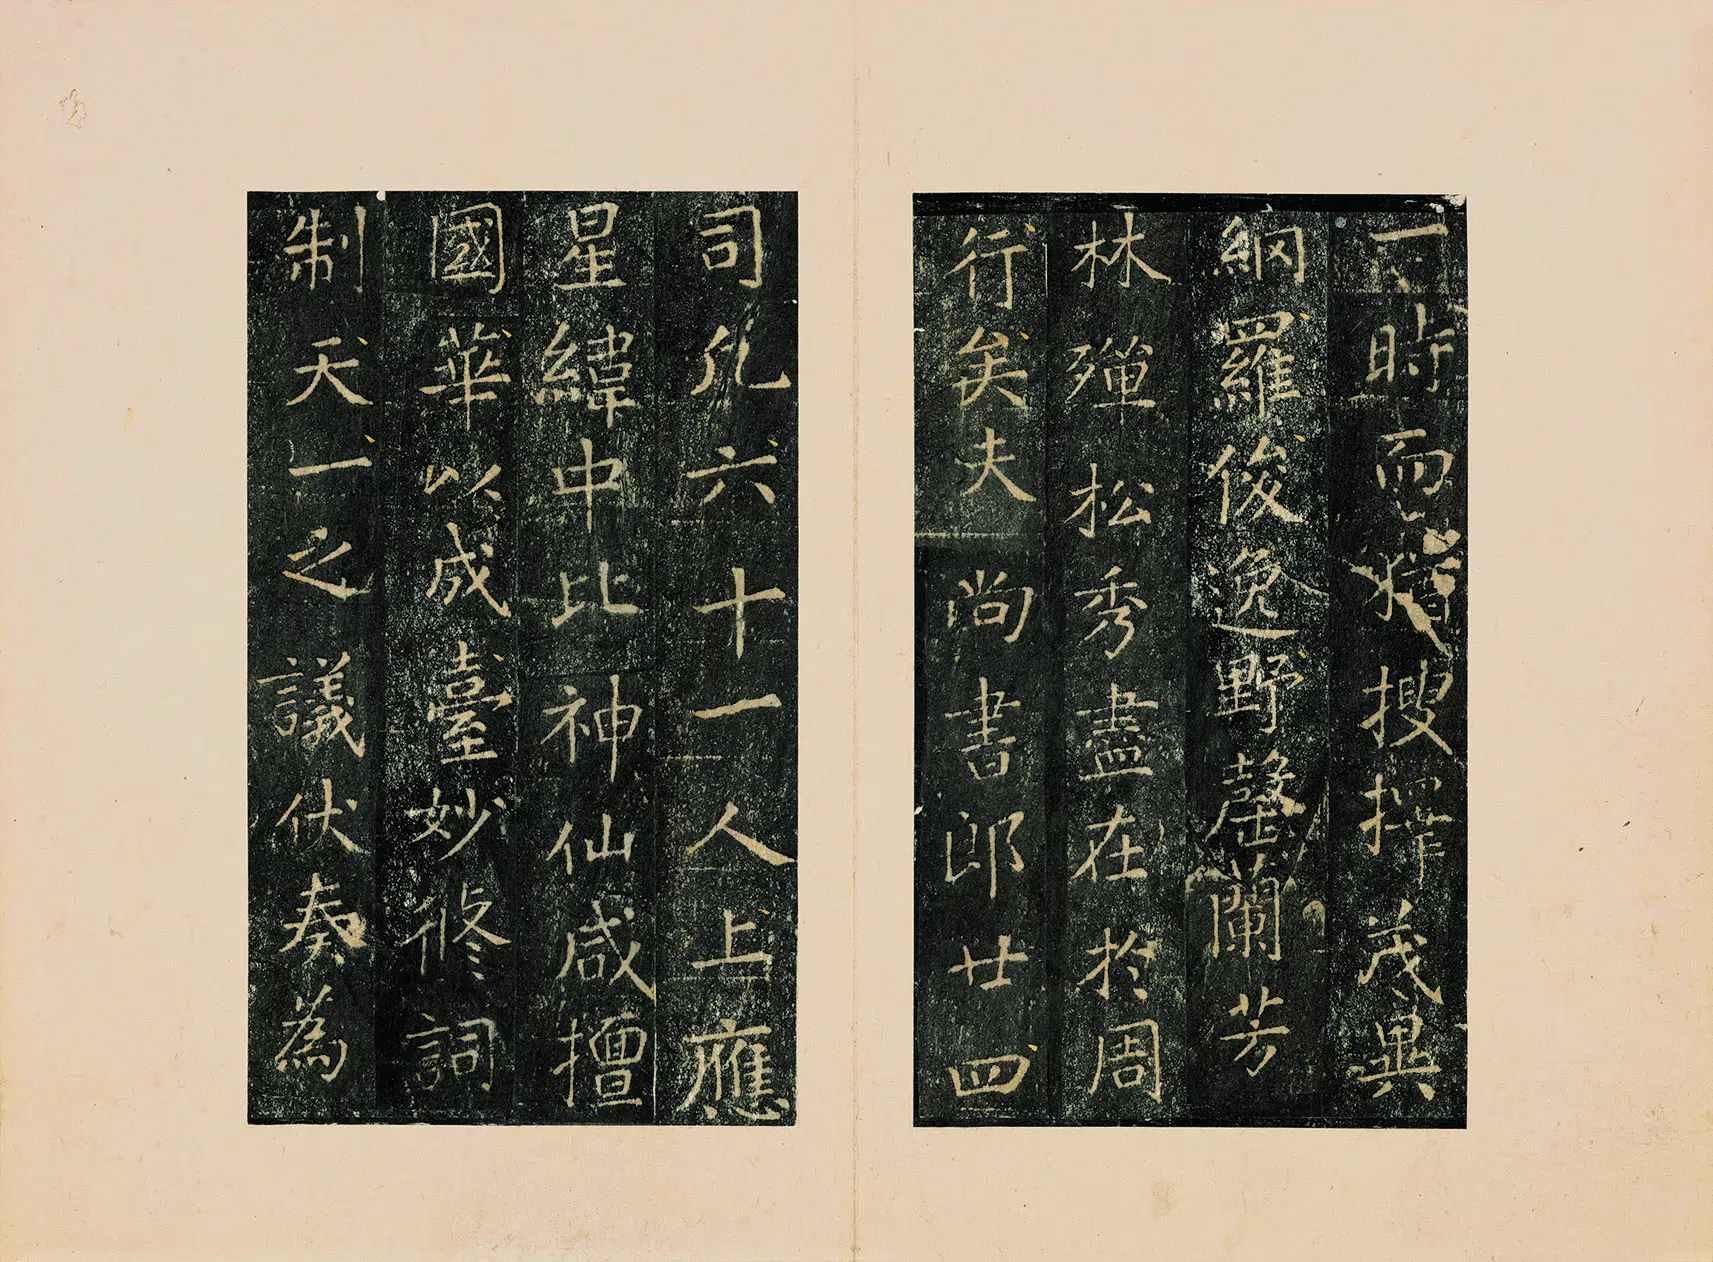 一時而猶搜擇茂異
網羅俊逸野罄蘭芳
林殫松秀盡在於周
行矣夫尚書郎廿四
司凡六十一人上應
星緯中比神仙咸擅
國華以成臺妙修詞
制天一之議伏奏為